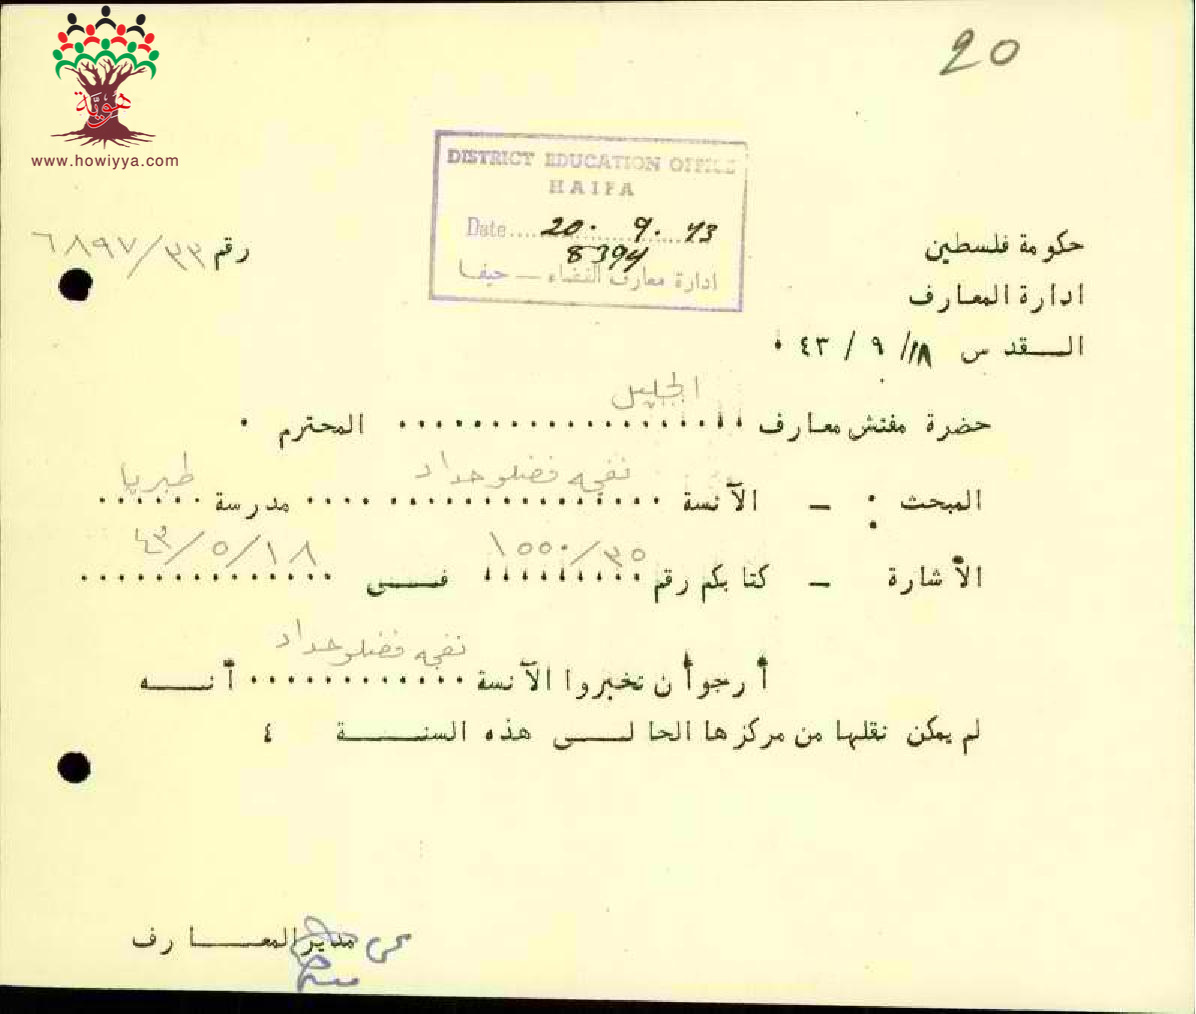 20
هوية
www.howiyya.com
DISTRICT EDUCATION OFFICE
HAIFA
Date.... 20. 9. 43
8394
ادارة معارف القضاء — حيفا
حكومة فلسطين
رقم ٦٨٩٧/٣٣
ادارة المعارف
القدس ١٨/ ٩ / ٤٣ ٠
حضرة مفتش معارف الجليل المحترم ٠
المبحث : – الآنسة نفجه فضلو حداد مدرسة طبريا
الأشارة – كتابكم رقم ١٥٥٠/٣٥ فى ١٨/٥/٤٣
أرجو أن تخبروا الآنسة نفجه فضلو حداد أنه
لم يمكن نقلها من مركزها الحالى هذه السنة ٤
عن مدير المعارف